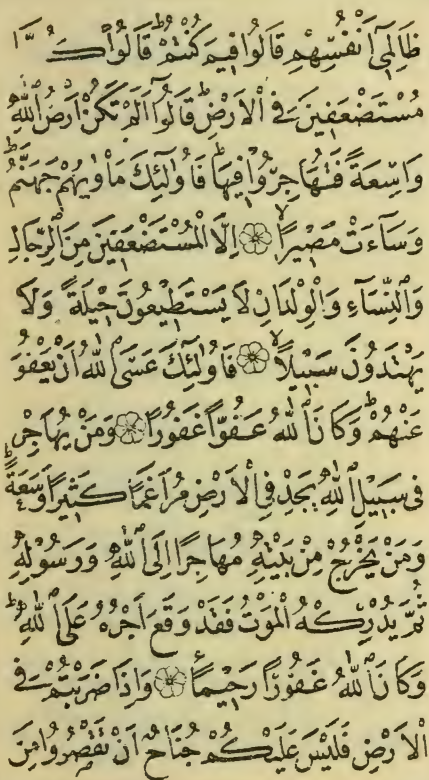 ظَالِمِىٓ اَنْفُسِهِمْ قَالُوا فِيمَ كُنْتُمْ قَالُوا كُنَّا
مُسْتَضْعَفِينَ فِى الْاَرْضِ قَالُوٓا اَلَمْ تَكُنْ اَرْضُ اللّٰهِ
وَاسِعَةً فَتُهَاجِرُوا فِيهَا فَاُولٰٓئِكَ مَاْوٰيهُمْ جَهَنَّمُ
وَسَٓاءَتْ مَصٖيرًا ۝ اِلَّا الْمُسْتَضْعَفِينَ مِنَ الرِّجَالِ
وَالنِّسَٓاءِ وَالْوِلْدَانِ لَا يَسْتَطِيعُونَ حِيلَةً وَلَا
يَهْتَدُونَ سَبِيلًا ۝ فَاُولٰٓئِكَ عَسَى اللّٰهُ اَنْ يَعْفُوَ
عَنْهُمْ وَكَانَ اللّٰهُ عَفُوًّا غَفُورًا ۝ وَمَنْ يُهَاجِرْ
فِى سَبِيلِ اللّٰهِ يَجِدْ فِى الْاَرْضِ مُرَاغَمًا كَثِيرًا وَسَعَةً
وَمَنْ يَخْرُجْ مِنْ بَيْتِهٖ مُهَاجِرًا اِلَى اللّٰهِ وَرَسُولِهٖ
ثُمَّ يُدْرِكْهُ الْمَوْتُ فَقَدْ وَقَعَ اَجْرُهُ عَلَى اللّٰهِ
وَكَانَ اللّٰهُ غَفُورًا رَحِيمًا ۝ وَاِذَا ضَرَبْتُمْ فِى
الْاَرْضِ فَلَيْسَ عَلَيْكُمْ جُنَاحٌ اَنْ تَقْصُرُوا مِنَ